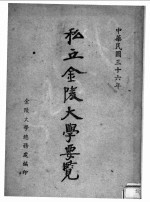 中華民國三十六年
私立金陵大學要覽
金陵大學總務處編印